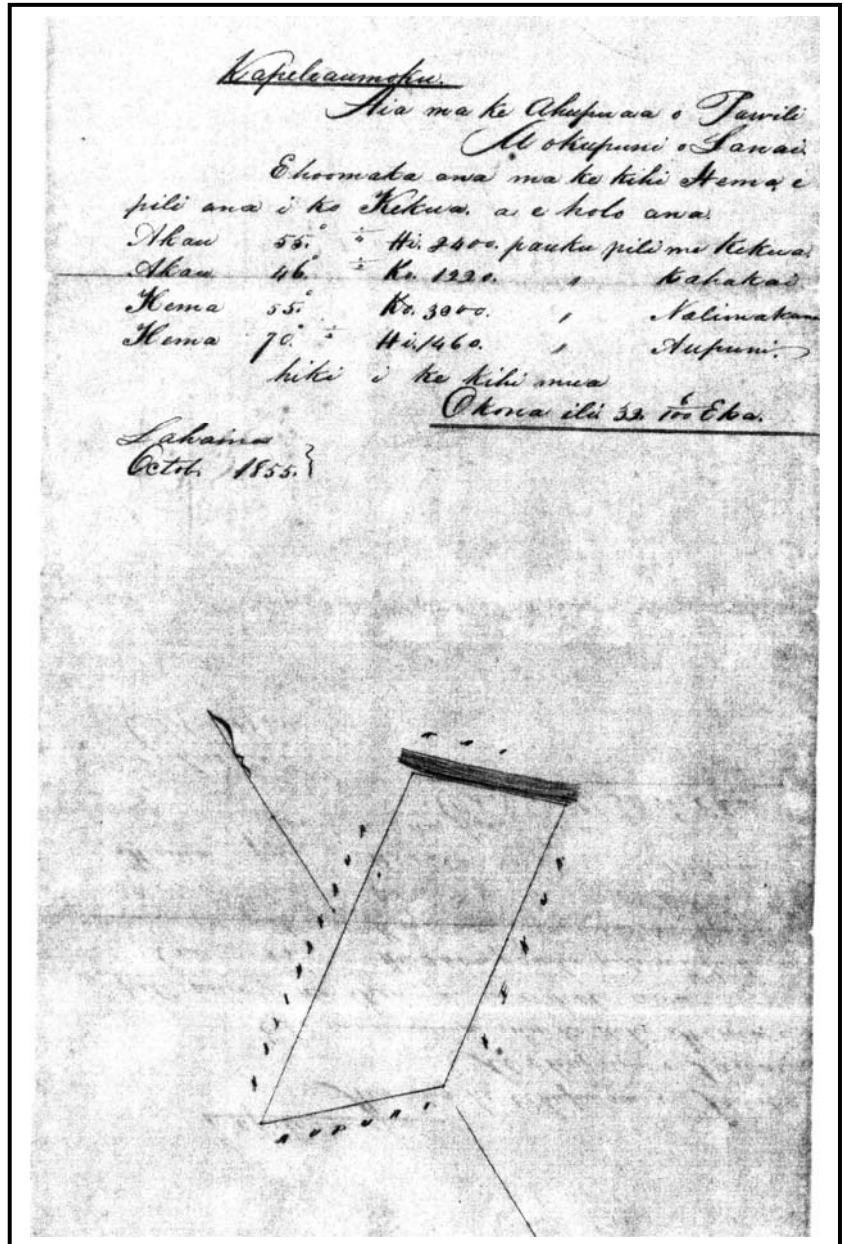 Kapeleaumoku.
Aia ma ke Ahupuaa o Pawili
Mokupuni o Lanai.
Ehoomaka ana ma ke kihi Hema e
pili ana i ko Kekua. a e holo ana
Akau 55.° ÷ Hi. 2400. pauku pili me Kekua.
Akau 46.° ÷ Ko. 1220. " Kahakai
Hema 55.° Ko. 3000. " Nalimakaua
Hema 70.° ÷ Hi. 1460. " Aupuni.
hiki i ke kihi mua
Okona ili 32. 6/100 Eka.
Lahaina
Octob. 1855.}
Aupuni